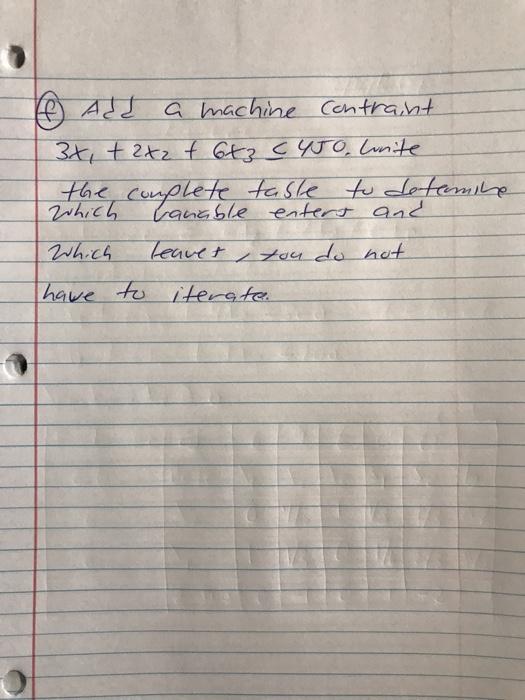 (f) Add a machine Contraint
3x₁ + 2x₂ + 6x₃ ≤ 450. Write
the complete table to determine
which variable enters and
which leaves, you do not
have to iterate.